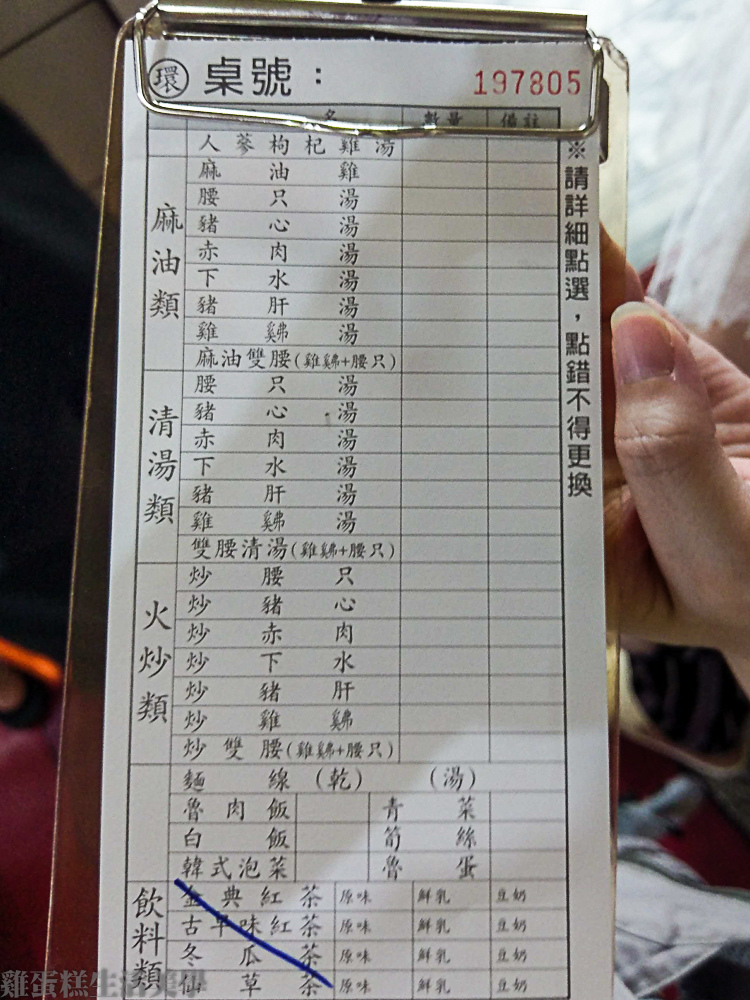 環 桌號：
197805
名 數量 備註
人蔘枸杞雞湯
麻油類
麻油雞
腰只湯
豬心湯
赤肉湯
下水湯
豬肝湯
雞鷄湯
麻油雙腰(雞鷄+腰只)
清湯類
腰只湯
豬心湯
赤肉湯
下水湯
豬肝湯
雞鷄湯
雙腰清湯(雞鷄+腰只)
火炒類
炒腰只
炒豬心
炒赤肉
炒下水
炒豬肝
炒雞鷄
炒雙腰(雞鷄+腰只)
麵線 (乾) (湯)
魯肉飯 青菜
白飯 筍絲
韓式泡菜 魯蛋
飲料類
金典紅茶 原味 鮮乳 豆奶
古早味紅茶 原味 鮮乳 豆奶
冬瓜茶 原味 鮮乳 豆奶
仙草茶 原味 鮮乳 豆奶
※請詳細點選，點錯不得更換
雞蛋糕生活美學